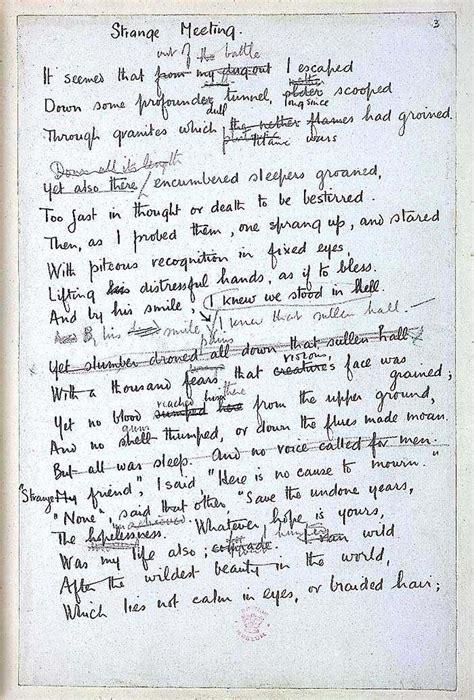 3
Strange Meeting.
out of the battle
It seemed that from my dug-out I escaped
nether
Down some profounder tunnel, older scooped
dull long since
Through granites which the nether flames had groined.
titanic wars
Down all its length
Yet also there encumbered sleepers groaned,
Too fast in thought or death to be bestirred.
Then, as I probed them, one sprang up, and stared
With piteous recognition in fixed eyes,
Lifting his distressful hands, as if to bless.
And by his smile, I knew we stood in Hell.
And By his smile I knew that sullen hall
Yet slumber droned all down that sullen hall
With a thousand fears that creature's face was grained;
pains vision's
Yet no blood sumped here from the upper ground,
reached him there
And no shell thumped, or down the flues made moan.
guns
But all was sleep. And no voice called for men.
"Strange My friend", I said "Here is no cause to mourn."
"None", said that other, "Save the undone years,
The hopelessness. Whatever hope is yours,
unachieved
Was my life also; I went hunting wild
After the wildest beauty in the world,
Which lies not calm in eyes, or braided hair;
MUSEUM